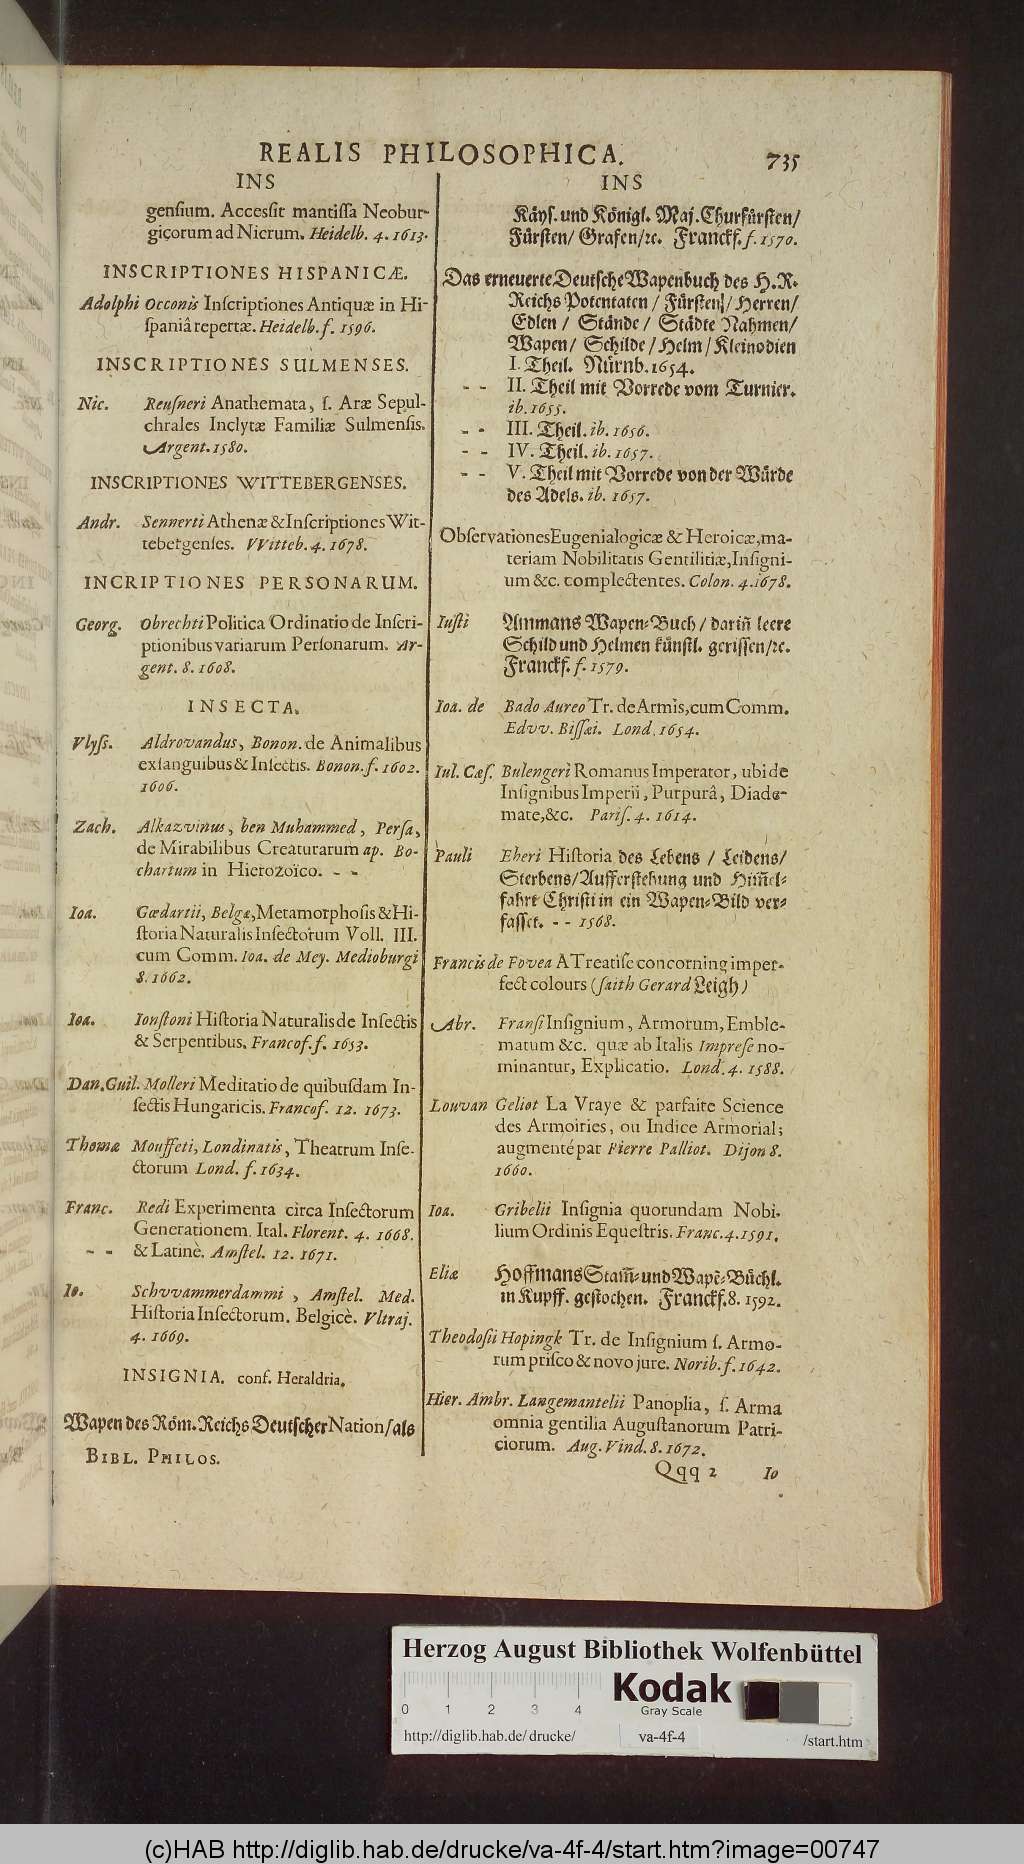 REALIS PHILOSOPHICA.
735
INS
genſium. Acceſſit mantiſſa Neobur-
gicorum ad Nicrum. Heidelb. 4. 1613.
INSCRIPTIONES HISPANICÆ.
Adolphi Occonis Inſcriptiones Antiquæ in Hi-
ſpaniâ repertæ. Heidelb. f. 1596.
INSCRIPTIONES SULMENSES.
Nic. Reuſneri Anathemata, ſ. Aræ Sepul-
chrales Inclytæ Familiæ Sulmenſis.
Argent. 1580.
INSCRIPTIONES WITTEBERGENSES.
Andr. Sennerti Athenæ & Inſcriptiones Wit-
tebergenſes. VVitteb. 4. 1678.
INCRIPTIONES PERSONARUM.
Georg. Obrechti Politica Ordinatio de Inſcri-
ptionibus variarum Perſonarum. Ar-
gent. 8. 1608.
INSECTA.
Vlyſſ. Aldrovandus, Bonon. de Animalibus
exſanguibus & Inſectis. Bonon. f. 1602.
1606.
Zach. Alkazvinus, ben Muhammed, Perſa,
de Mirabilibus Creaturarum ap. Bo-
chartum in Hierozoïco. - -
Ioa. Gœdartii, Belgæ, Metamorphoſis & Hi-
ſtoria Naturalis Inſectorum Voll. III.
cum Comm. Ioa. de Mey. Medioburgi
8. 1662.
Ioa. Ionſtoni Hiſtoria Naturalis de Inſectis
& Serpentibus. Francof. f. 1653.
Dan. Guil. Molleri Meditatio de quibuſdam In-
ſectis Hungaricis. Francof. 12. 1673.
Thomæ Mouffeti, Londinatis, Theatrum Inſe-
ctorum Lond. f. 1634.
Franc. Redi Experimenta circa Inſectorum
Generationem. Ital. Florent. 4. 1668.
- - & Latinè. Amſtel. 12. 1671.
Io. Schvvammerdammi, Amſtel. Med.
Hiſtoria Inſectorum. Belgicè. Vltraj.
4. 1669.
INSIGNIA. conf. Heraldria.
Wapen des Röm. Reichs Deutſcher Nation/ als
BIBL. PHILOS.
INS
Käyſ. und Königl. Maj. Churfürſten/
Fürſten/ Grafen/ ꝛc. Franckf. f. 1570.
Das erneuerte Deutſche Wapenbuch des H. R.
Reichs Potentaten / Fürſten / Herren/
Edlen / Stände / Städte Nahmen/
Wapen/ Schilde / Helm / Kleinodien
I. Theil. Nürnb. 1654.
- - II. Theil mit Vorrede vom Turnier.
ib. 1655.
- - III. Theil. ib. 1656.
- - IV. Theil. ib. 1657.
- - V. Theil mit Vorrede von der Würde
des Adels. ib. 1657.
Obſervationes Eugenialogicæ & Heroicæ, ma-
teriam Nobilitatis Gentilitiæ, Inſigni-
um &c. complectentes. Colon. 4. 1678.
Iuſti Ammans Wapen-Buch / dariñ leere
Schild und Helmen künſtl. geriſſen/ ꝛc.
Franckf. f. 1579.
Ioa. de Bado Aureo Tr. de Armis, cum Comm.
Edvv. Biſſæi. Lond. 1654.
Iul. Cæſ. Bulengeri Romanus Imperator, ubi de
Inſignibus Imperii, Purpurâ, Diade-
mate, &c. Pariſ. 4. 1614.
Pauli Eberi Hiſtoria des Lebens / Leidens/
Sterbens/ Aufferſtehung und Him̃el-
fahrt Chriſti in ein Wapen-Bild ver-
faſſet. - - 1568.
Francis de Fovea A Treatiſe concorning imper-
fect colours (ſaith Gerard Leigh)
Abr. Franſi Inſignium, Armorum, Emble-
matum &c. quæ ab Italis Impreſe no-
minantur, Explicatio. Lond. 4. 1588.
Louvan Geliot La Vraye & parfaite Science
des Armoiries, ou Indice Armorial;
augmenté par Pierre Palliot. Dijon 8.
1660.
Ioa. Gribelii Inſignia quorundam Nobi-
lium Ordinis Equeſtris. Franc. 4. 1591.
Eliæ Hoffmans Stam̃- und Wapẽ-Büchl.
in Kupff. geſtochen. Franckf. 8. 1592.
Theodoſii Hopingk Tr. de Inſignium ſ. Armo-
rum priſco & novo jure. Norib. f. 1642.
Hier. Ambr. Langemantelii Panoplia, ſ. Arma
omnia gentilia Auguſtanorum Patri-
ciorum. Aug. Vind. 8. 1672.
Qqq 2
Io
Herzog August Bibliothek Wolfenbüttel
Kodak
Gray Scale
0 1 2 3 4
http://diglib.hab.de/drucke/
va-4f-4
/start.htm
(c)HAB http://diglib.hab.de/drucke/va-4f-4/start.htm?image=00747